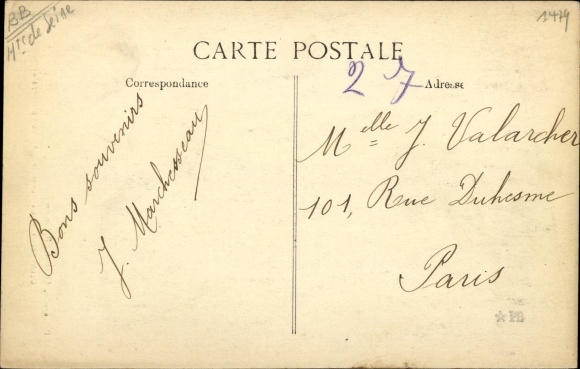 BB
Hts de Seine
1479
CARTE POSTALE
27
Correspondance
Adresse
Bons souvenirs
J. Marchesseau
Melle J. Valarcher
101, Rue Duhesme
Paris